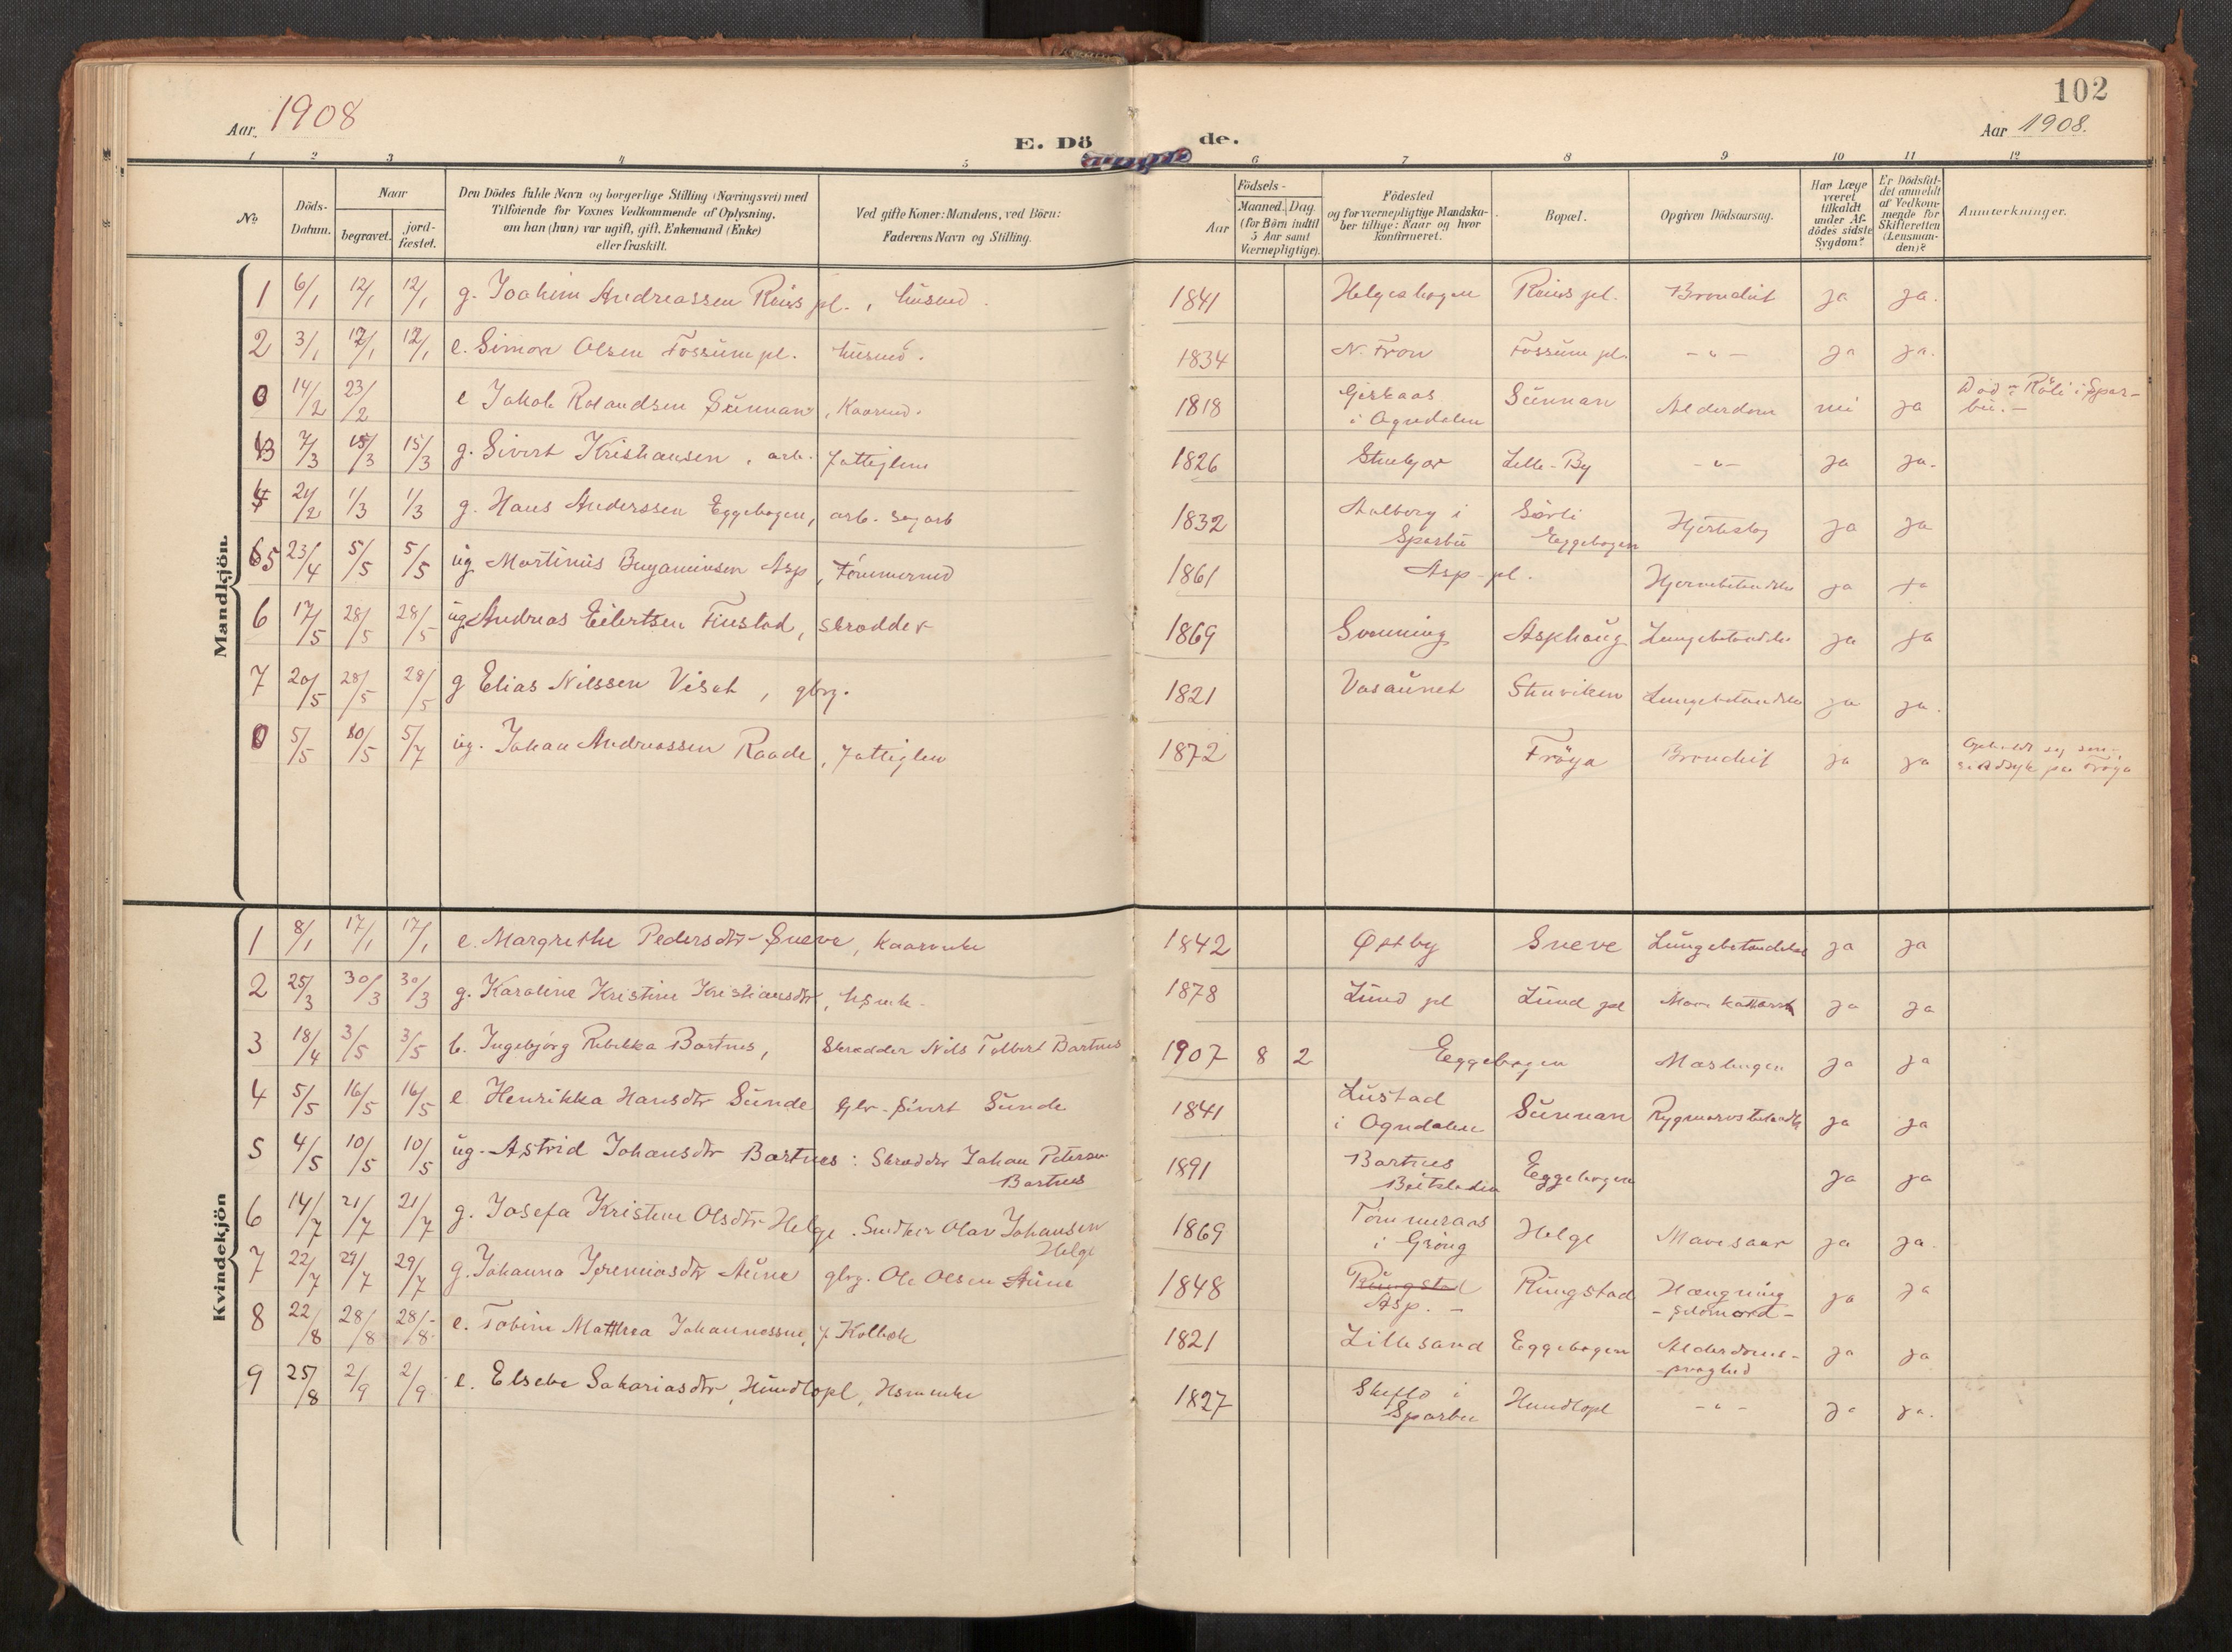 102
Aar. 1908
E. Dö de.
Aar 1908.
1 2 3 4 5 6 7 8 9 10 11 12
No
Döds-Datum.
Naar
begravet.
jord-fæstet.
Den Dödes fulde Navn og borgerlige Stilling (Næringsvei) med
Tilföiende for Voxnes Vedkommende af Oplysning,
om han (hun) var ugift, gift, Enkemand (Enke)
eller fraskilt.
Ved gifte Koner: Mandens, ved Börn:
Faderens Navn og Stilling.
Aar
Födsels-
Maaned. Dag.
(for Börn indtil
5 Aar samt
Værnepligtige).
Födested
og for værnepligtige Mandska-
ber tillige: Naar og hvor
konfirmeret.
Bopæl.
Opgiven Dödsaarsag.
Har Læge
været
tilkaldt
under Af-
dödes sidste
Sygdom?
Er Dödsfal-
det anmeldt
af Vedkom-
mende for
Skifteretten
(Lensman-
den)?
Anmærkninger.
Mandkjön.
1 6/1 12/1 12/1 g. Joakim Andreassen Reins pl., husmd. 1841 Helgeshagen Reins pl. Bronchit ja ja.
2 3/1 12/1 12/1 e. Simon Olsen Fossum pl. husmd. 1834 N. Fron Fossum pl. - " - ja ja.
0 14/2 23/2 e Jakob Rolandsen Sunnan, Kaarmd. 1818 Giskaas i Ogndalen Sunnan Alderdom nei ja Död i Röli i Spar-
bu. -
3 7/3 15/3 15/3 g. Sivert Kristiansen, arb. fattiglem 1826 Stenkjær Lille-By - " - ja ja.
4 24/2 1/3 1/3 g. Hans Anderssen Eggebogen, arb. sagarb 1832 Aalberg i Sparbu Sörli Eggebogen Hjerteslag ja ja
5 23/4 5/5 5/5 ug. Martinus Benjaminsen Asp, Tömmermd 1861 Asp-pl. Hjernebetændelse ja ja
6 17/5 28/5 28/5 ug. Andreas Eilertsen Finstad, skrædder 1869 Svenning Asphaug Lungebetændelse ja ja
7 20/5 28/5 28/5 g Elias Nilssen Viset, gbrg. 1821 Vasaunet Stenviken Lungebetændelse ja ja.
0 5/5 10/5 5/7 ug. Johan Andreassen Raade, fattiglem 1872 Fröya Bronchit ja ja Opholdt sig som
sindsyk paa Fröya
Kvindekjön
1 8/1 17/1 17/1 e. Margrethe Pedersdtr Sneve, Kaarenke 1842 Østby Sneve Lungebetændelse ja ja
2 25/3 30/3 30/3 g. Karoline Kristine Kristiansdtr, 1878 Lund pl Lund pl Mavekattarrh ja ja
3 18/4 3/5 3/5 b. Ingebjörg Rebekka Bartnes, Skrædder Nils Tolbert Bartnes 1907 8 2 Eggebogen Mæslinger ja ja
4 5/5 16/5 16/5 e Henrikka Hansdtr Sunde Gbr. Sivert Sunde 1841 Lustad i Ogndalen Sunnan Rygmarvsbetændelse ja ja
5 4/5 10/5 10/5 ug. Astrid Johansdtr Bartnes: Skrædder Johan Petersen
Bartnes 1891 Bartnes Beitstaden Eggebogen ja ja
6 14/7 21/7 21/7 g. Josefa Kristine Olsdtr Helge. Snedker Olav Johansen
Helge 1869 Tömmeraas i Gröng Helge Mavesaar ja ja
7 22/7 29/7 29/7 g. Johanna Jeremiasdtr Aune gbrg. Ole Olsen Aune 1848 Rungstad Asp. - Rungstad Hængning - selvmord - ja ja
8 22/8 28/8 28/8 e. Tobine Matthea Johannessen, f. Kolbek 1821 Lillesand Eggebogen Alderdoms-
svaghed ja ja
9 25/8 2/9 2/9 e. Elsebe Sakariasdtr, Hundlopl, Hsmenke 1827 Skeflo i Sparbu Hundlopl - " - ja ja.